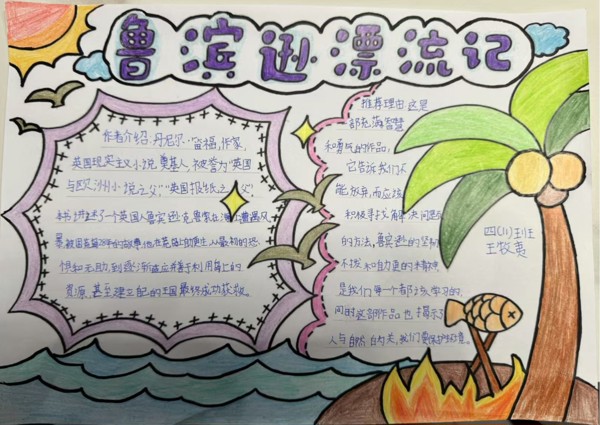 鲁滨逊漂流记
作者介绍:丹尼尔·笛福,作家,
英国现实主义小说奠基人,被誉为"英国
与欧洲小说之父""英国报纸之父"
本书讲述了个英国人鲁宾逊克鲁索在海上遭遇风
暴,被困荒岛28年的故事,他在荒岛上的生从最初的恐
惧和无助,到逐渐适应并善于利用岛上的
资源,甚至建立己的王国最终成功获救。
推荐理由 这是
一部充满智慧
和勇气的作品,
它告诉我们不
能放弃,而应该
积极寻找解决问题
的方法,鲁滨逊的坚韧
不拔和自力更的精神
是我们每一个都该学习的,
同时这部作品也揭示了
人与自然的关,我们要保护环境。
四(1)班
王牧